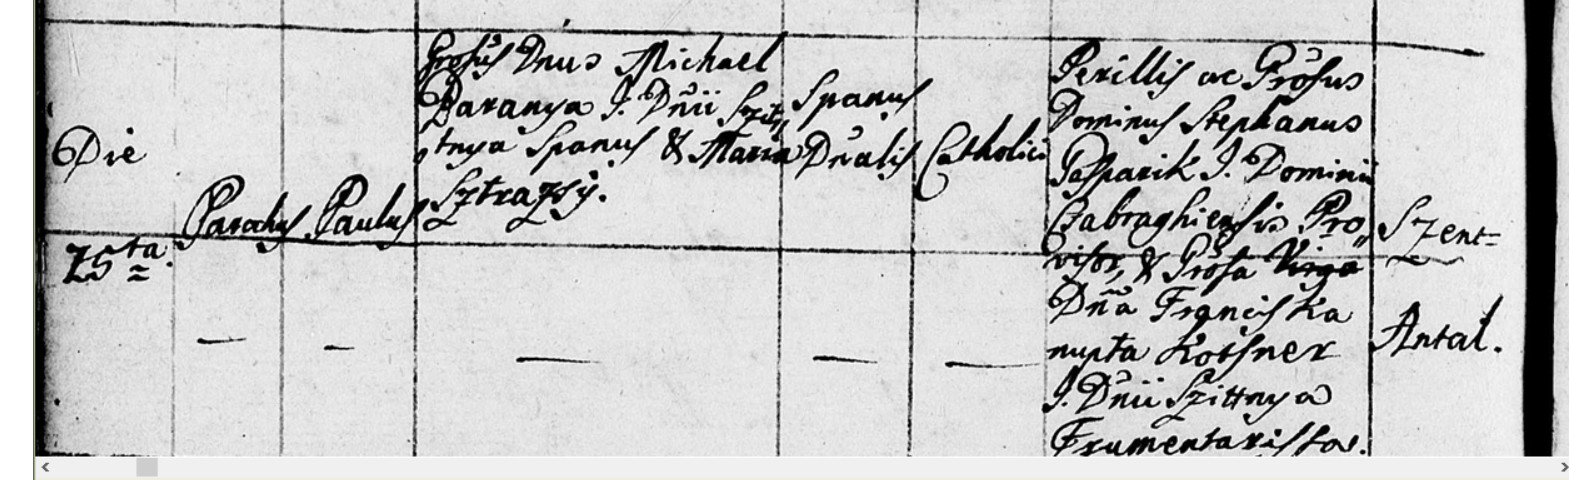 Die
25ta.
Parochus
Paulus
Grosus Dnus Michael
Baranya I. Dnii Szit„
„tnya Spanus & Maria
Sztrapsy.
Spanus
Dnalis
Catholici
Perillis ac Grosus
Dominus Stephanus
Gasparik I. Dominii
Csabraghiensis Pro„
visor, & Grosa Virgo
Dna Franciska
nupta Kotsner
I. Dnii Szittnya
Frumentarissa.
Szent=
Antal.